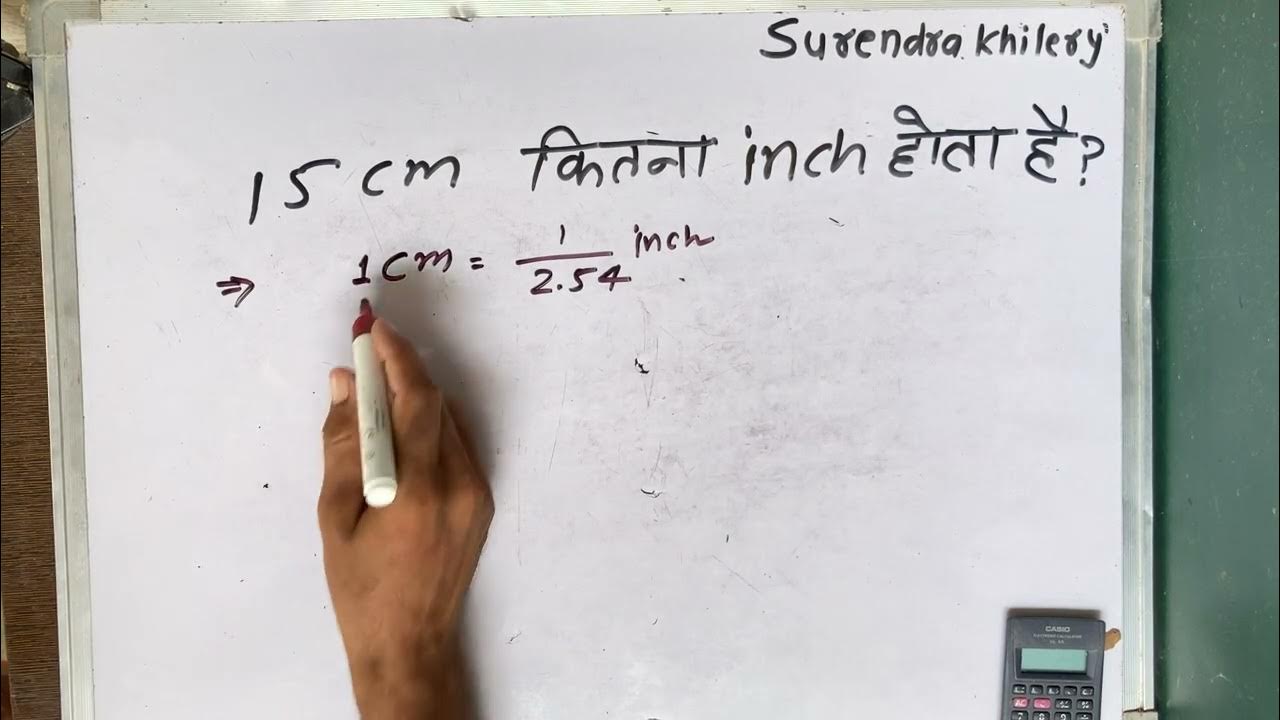 Surendra Khilery
15 cm कितना inch होता है?
⇒ 1 cm = 1/2.54 inch
CASIO
AC
7 8 9